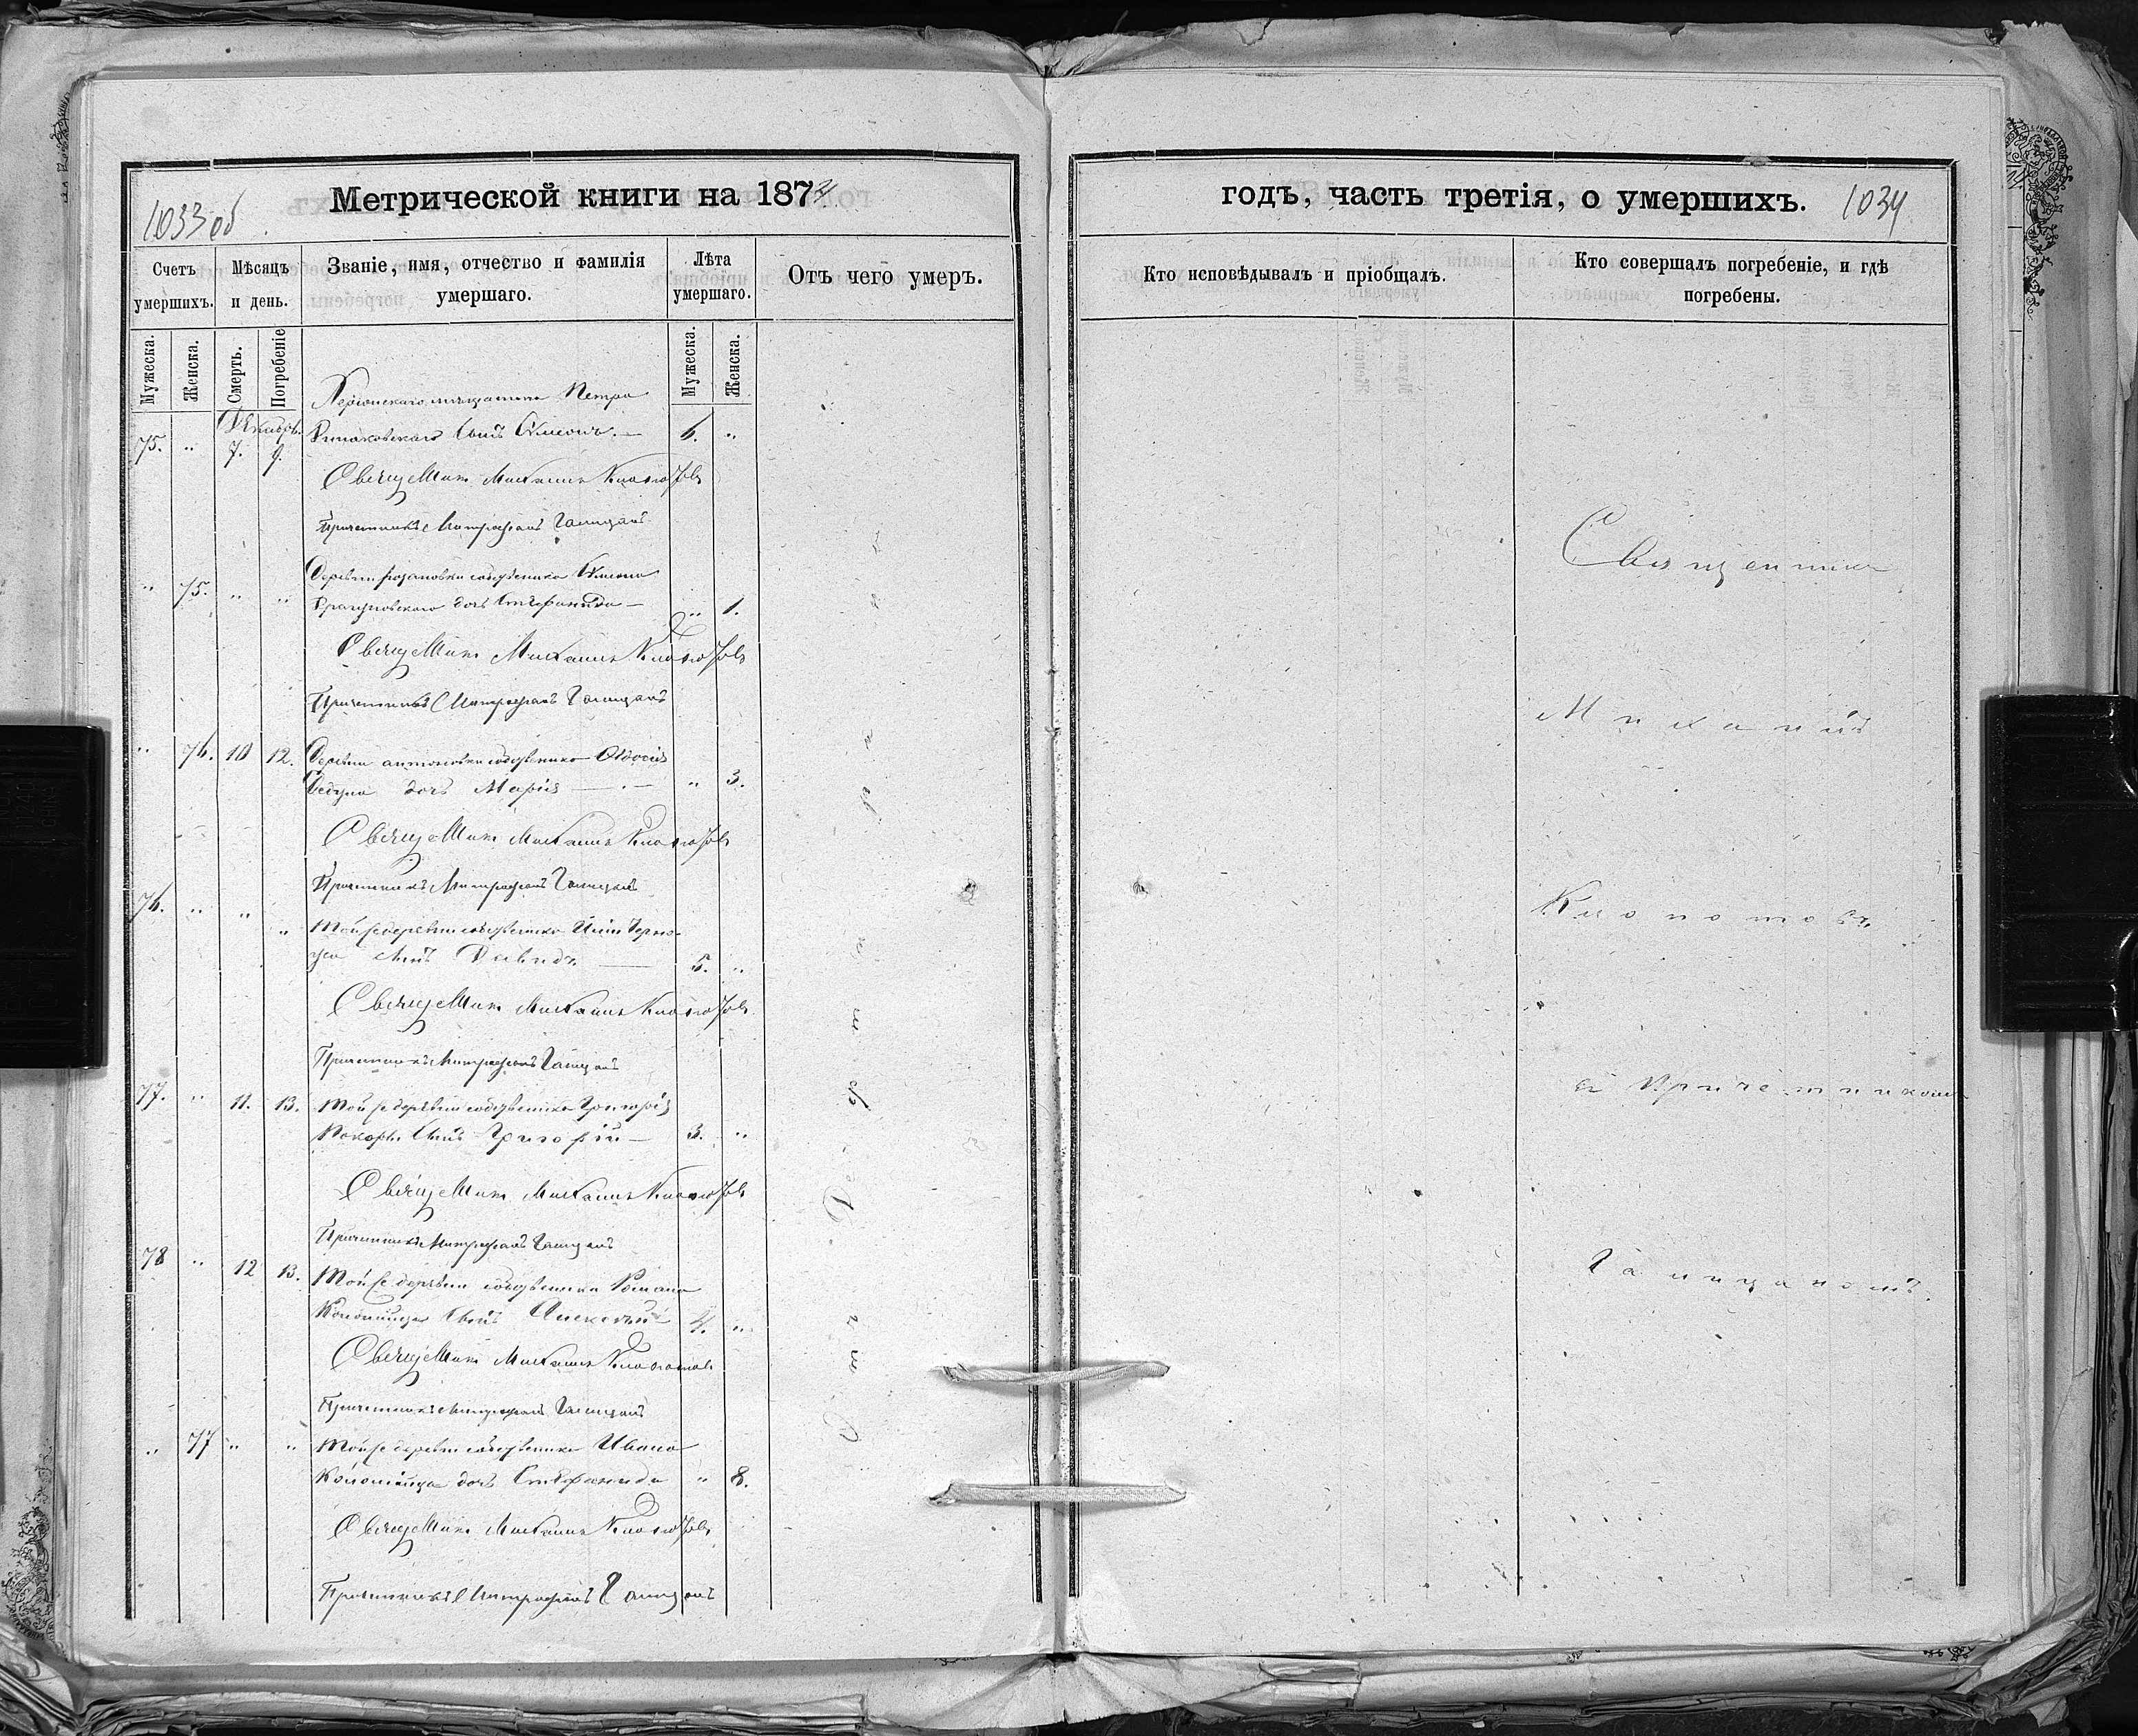 1033 об
Метрической книги на 1874
Счетъ умершихъ.
Мѣсяцъ и день.
Званіе, имя, отчество и фамилія умершаго.
Лѣта умершаго.
Отъ чего умеръ.
Мужеска.
Женска.
Смерть.
Погребеніе
Мужеска.
Женска.
Херсонскаго мѣщанина Петра
75. " Декабрь. 7. 9. сынъ Симеонъ. — 6. "
Священникъ Михаилъ Клопотовъ
Причетникъ Митрофанъ Галицанъ
" 75. " " Деревни собственника Симеона
дочь Стефанида — " 1.
Священникъ Михаилъ Клопотовъ
Причетникъ Митрофанъ Галицанъ
" 76. 10 12. Деревни антоновки собственника Ѳеодосія
дочь Марія — " 3.
Священникъ Михаилъ Клопотовъ
Причетникъ Митрофанъ Галицанъ
76. " " " Той же деревни собственника
сынъ Давидъ — 5. "
Священникъ Михаилъ Клопотовъ
Причетникъ Митрофанъ Галицанъ
77. " 11. 13. Той же деревни собственника Григорія
Кокоръ сынъ Григорій — 3. "
Священникъ Михаилъ Клопотовъ
Причетникъ Митрофанъ Галицанъ
78 " 12 13. Той же деревни собственника Романа
Коломійца сынъ Алексѣй 4. "
Священникъ Михаилъ Клопотовъ
Причетникъ Митрофанъ Галицанъ
" 77 " " Той же деревни собственника Ивана
Коломійца дочь Стефанида " 8.
Священникъ Михаилъ Клопотовъ
Причетникъ Митрофанъ Галицанъ
годъ, часть третія, о умершихъ.
1034
Кто исповѣдывалъ и пріобщалъ.
Кто совершалъ погребеніе, и гдѣ погребены.
Священникъ
Михаилъ
Клопотовъ
съ Причетникомъ
Галицаномъ.